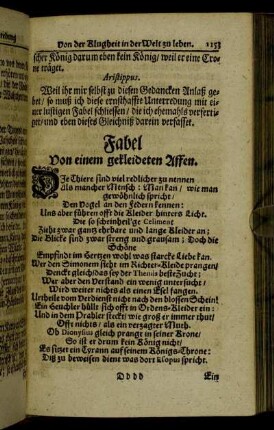 Von der Klugheit in der Welt zu leben. 1153
scher König darum eben kein König/ weil er eine Cro-
ne träget.
Aristippus.
Weil ihr mir selbst zu diesen Gedancken Anlaß ge-
bet/ so muß ich diese ernsthaffte Unterredung mit ei-
ner lustigen Fabel schliessen/ die ich ehemahls verferti-
get/ und eben dieses Gleichniß darein verfasset.
Fabel
Von einem gekleideten Affen.
DJe Thiere sind viel redlicher zu nennen
Als mancher Mensch: Man kan/ wie man
gewöhnlich spricht/
Den Vogel an den Federn kennen:
Uns aber führen offt die Kleider hinters Licht.
Die so scheinheil'ge Celiment
Zieht zwar gantz ehrbare und lange Kleider an;
Die Blicke sind zwar streng und grausam; Doch die
Schöne
Empfindt im Hertzen wohl was starcke Liebe kan.
Wer den Simonem sieht im Richter-Kleide prangen/
Denckt gleich/ das sey der Themis beste Zucht;
Wer aber den Verstand ein wenig untersucht/
Wird weiter nichts als einen Esel fangen.
Urtheile vom Verdienste nicht nach den blossen Schein!
Ein Heuchler hüllt sich offt in Ordens-Kleider ein;
Und in dem Prahler steckt/ wie groß er immer thut/
Offt nichts/ als ein verzagter Muth.
Ob Dionysius gleich prangt in seiner Krone/
So ist er drum kein König nicht/
Es sitzet ein Tyrann auf seinem Königs-Throne:
Diß zu beweisen dient was dort Æsopus spricht.
Dddd Ein